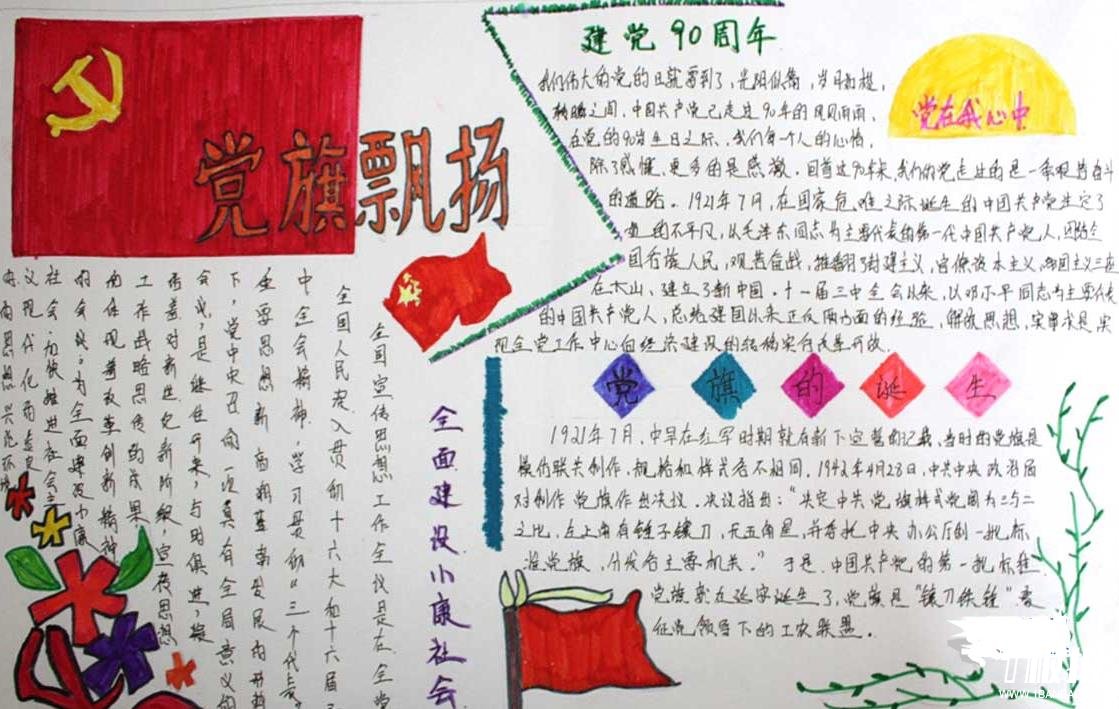 党旗飘扬
建党90周年
我们伟大的党的日就要到了，光阴似箭，岁月如梭，
转瞬之间，中国共产党已走过90年的风风雨雨，
在党的90岁生日之际，我们每一个人的心情，
除了感慨，更多的是感激。回首这90年来，我们的党走过的是一条艰苦奋斗
的道路。1921年7月，在国家危难之际诞生的中国共产党注定了
的不平凡，从毛泽东同志为主要代表的第一代中国共产党人，团结全
国各族人民，艰苦奋战，推翻了封建主义，官僚资本主义，帝国主义三座
大山、建立了新中国。十一届三中全会以来，以邓小平同志为主要代表
的中国共产党人，总结建国以来正反两方面的经验，解放思想，实事求是，实
现全党工作中心向经济建设的转移实行改革开放。
党在我心中
党旗的诞生
1921年7月，中早在红军时期就有新下空营的记载，当时的党旗是
模仿联共制作，规格和样式各不相同，1942年4月28日，中共中央政治局
对制作党旗作出决议。决议指出：“决定中共党旗样式宽阔为三与二
之比，左上角有锤子镰刀，无五角星，并委托中央办公厅制一批标
准党旗，分发各主要机关。”于是，中国共产党的第一批标准
党旗就在延安诞生了，党旗是“镰刀铁锤”象
征党领导下的工农联盟。
全面建设小康社会
全国宣传思想工作会议是在全党
全国人民深入贯彻十六大和十六届三
中全会精神，学习贯彻“三个代表
重要思想新高潮蓬勃发展的形势
下，党中央召开的一次具有全局意义的
会议，是继往开来，与时俱进，凝
对新世纪新阶级，宣传思想
工作战略思考的成果
体现着改革创新精神
的会议；为全面建设小康
社会，加快推进社会主
义现代化
WWW.1BAO.